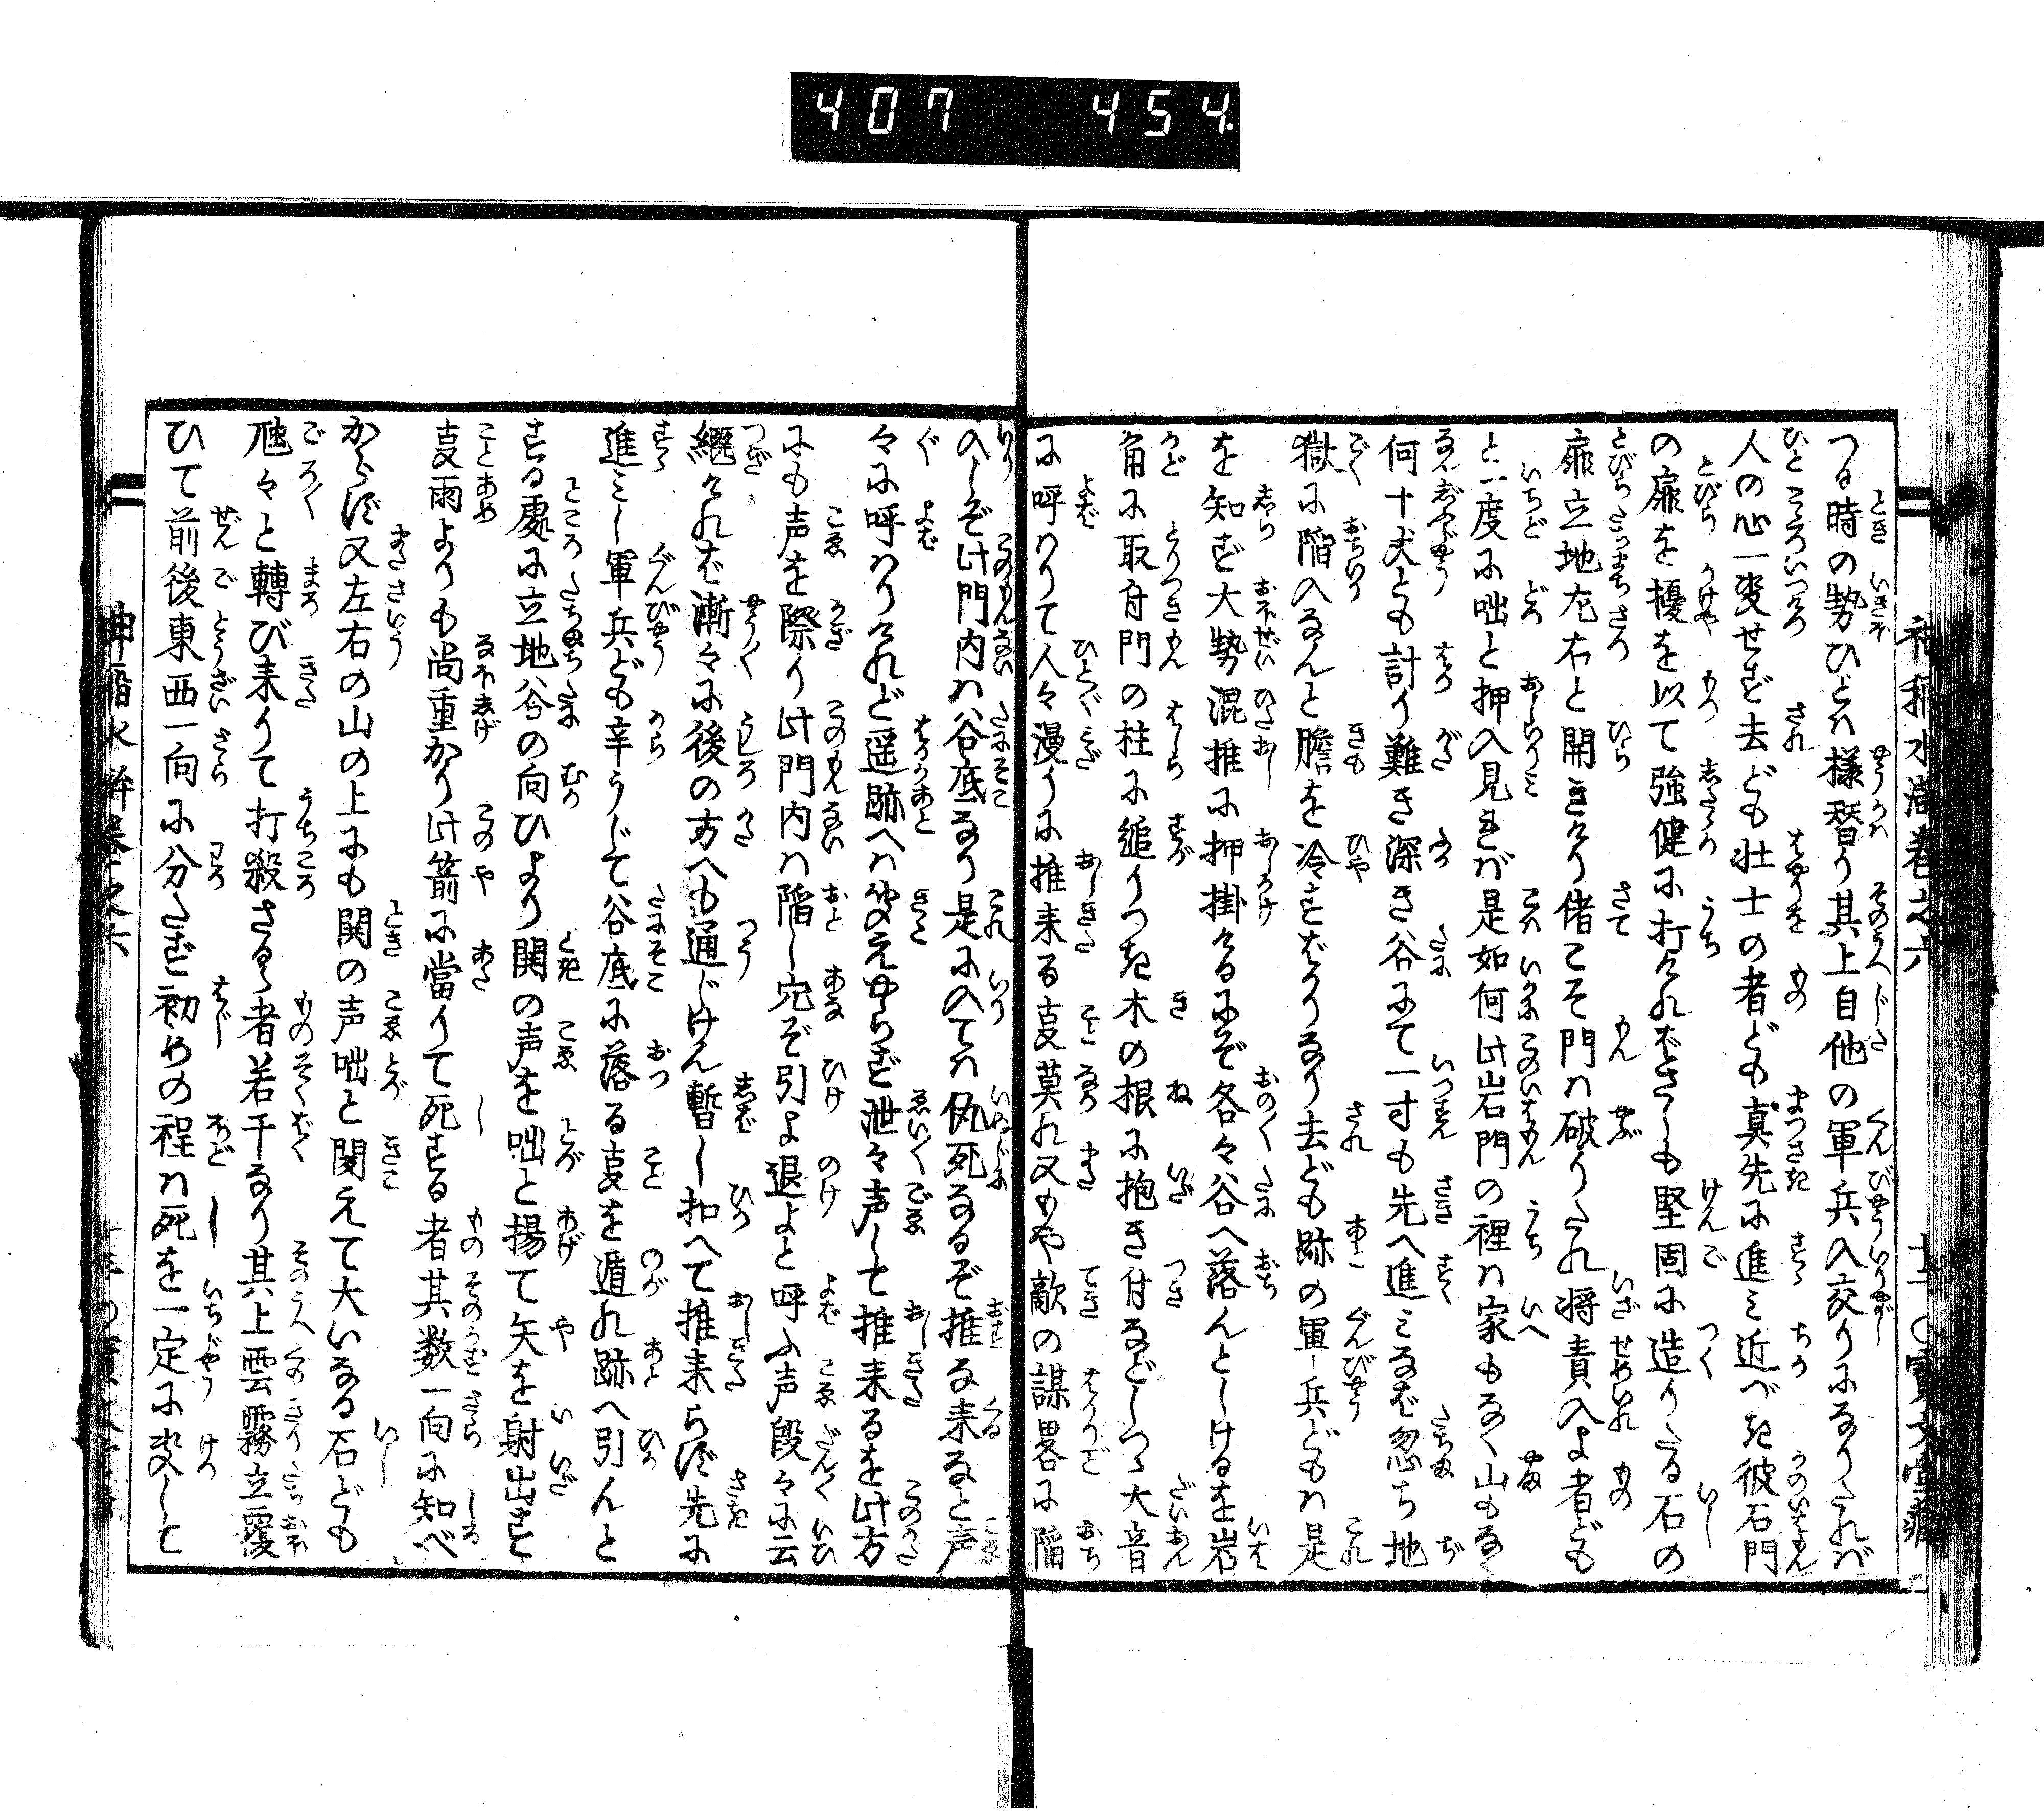 407 454
つる時の勢ひとハ様替り其上自他の軍兵入交りになりたれバ
人の心一変せず去ども壮士の者ども真先に進ミ近べき彼石門
の扉を擾を以て強健に打けれどさしも堅固に造りたる石の
扉立地左右と開きけり偖こそ門ハ破りたれ将責入よ者ども
と一度に咄と押入見れバ是如何此岩門の裡ハ家もなく山もなく
何十丈とも計り難き深き谷にて一寸も先へ進ミなば忽ち地
獄に陥入なんと膽を冷すばかりなり去ども跡の軍兵どもハ是
を知ず大勢混推に押掛けるにぞ各々谷へ落んとしけるを岩
角に取付門の柱に縋りつき木の根に抱き付などしつゝ大音
に呼ハりて人々漫りに推来る事莫れ又もや敵の謀畧に陥
入しぞ此門内ハ谷底なり是に入てハ仇死なるぞ推な来なと声
々に呼ハりけれど遥跡へハ聞えやらず泄々声して推来るを此方
にも声を際り此門内ハ陥し穴ぞ引よ退よと呼ふ声段々に云
継けれバ漸々に後の方へも通じけん暫し扣へて推来らず先に
進ミし軍兵ども辛うじて谷底に落る事を遁れ跡へ引んと
する處に立地谷の向ひより閧の声を咄と揚て矢を射出す
事雨よりも尚重かり此箭に當りて死する者其数一向に知べ
からず又左右の山の上にも閧の声咄と聞えて大いなる石ども
碌々と轉び来りて打殺さるゝ者若干なり其上雲霧立覆
ひて前後東西一向に分たず初めの程ハ死を一定に决して